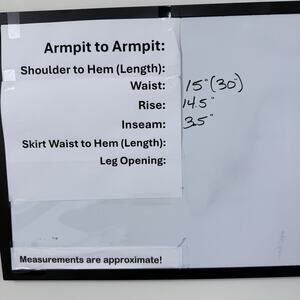 Armpit to Armpit:
Shoulder to Hem (Length):
Waist: 15" (30")
Rise: 14.5"
Inseam: 3.5"
Skirt Waist to Hem (Length):
Leg Opening:
Measurements are approximate!